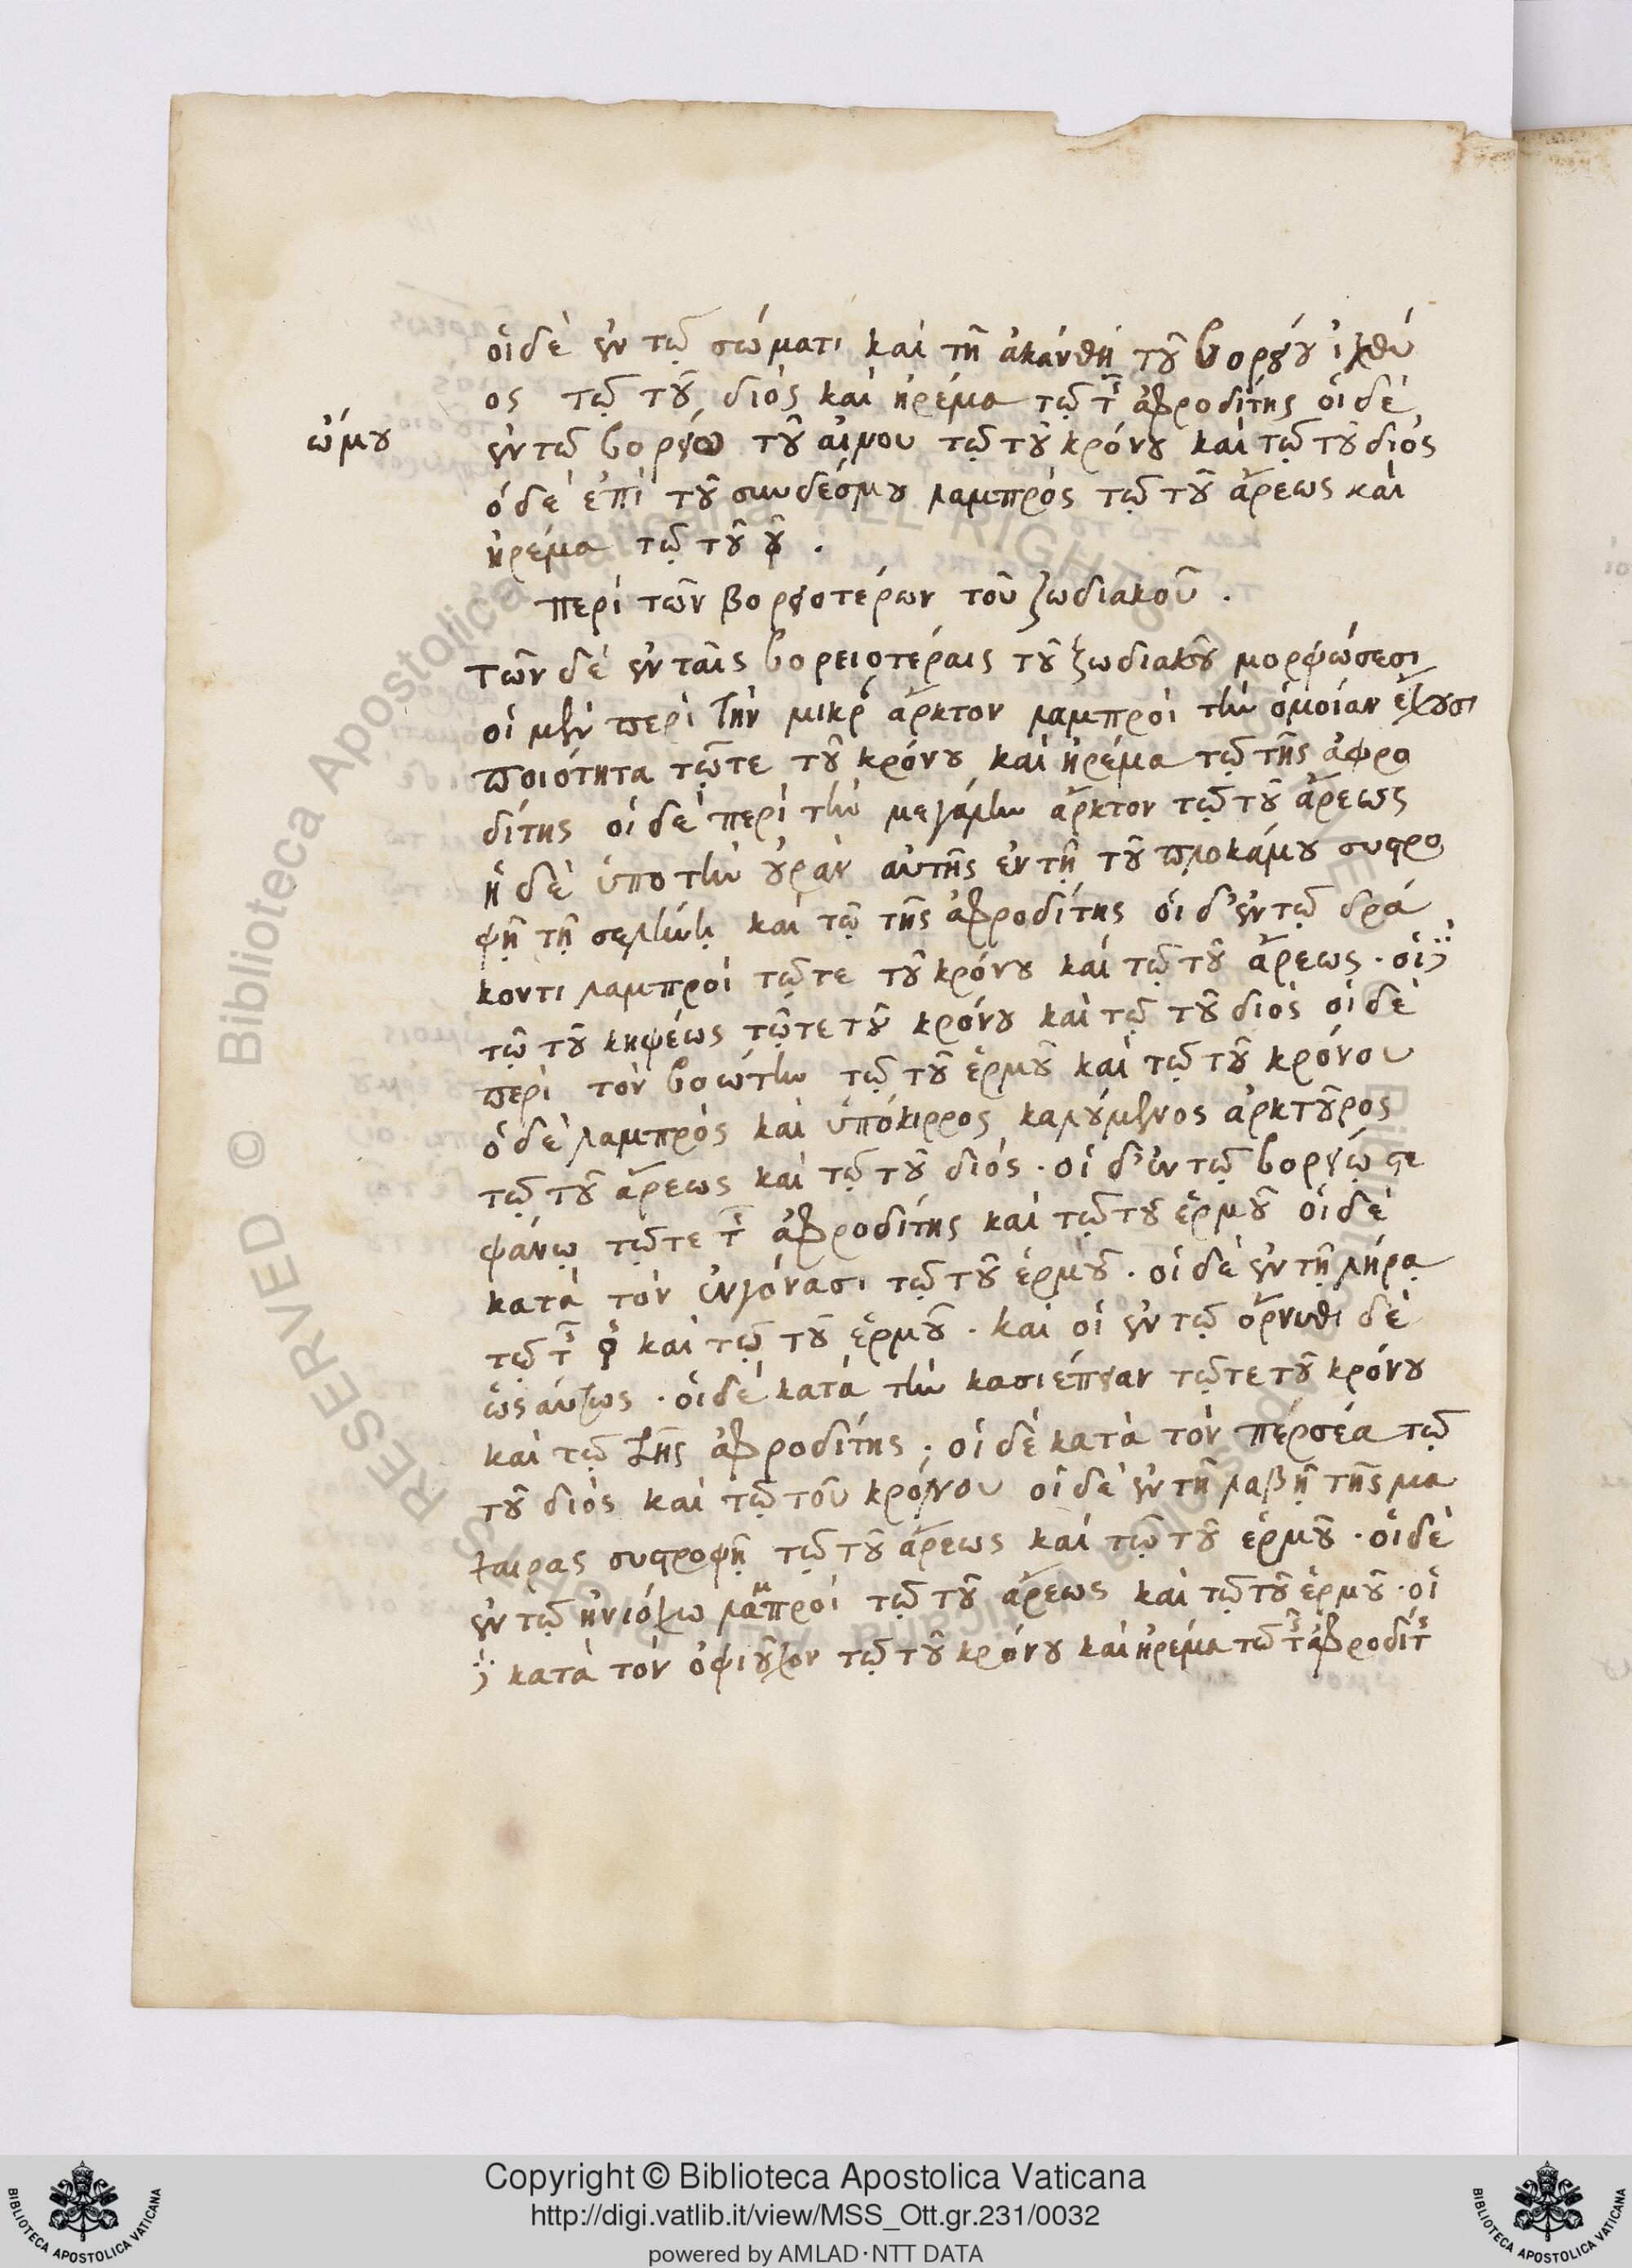 οἱ δὲ ἐν τῷ σώματι καὶ τῆ ἀκάνθη τοῦ βορείου ἰχθύ
ος τῷ τοῦ διὸς καὶ ἠρέμα τῷ τῆς ἀφροδίτης οἱ δὲ
ὤμου
ἐν τῷ βορείω τοῦ λίνου τῷ τοῦ κρόνου καὶ τῷ τοῦ διὸς
ὁ δὲ ἐπὶ τοῦ συνδέσμου λαμπρὸς τῷ τοῦ ἄρεως καὶ
ἠρέμα τῷ τοῦ ☿ .
περὶ τῶν βορειοτέρων τοῦ ζωδιακοῦ .
τῶν δὲ ἐν ταῖς βορειοτέραις τοῦ ζωδιακοῦ μορφώσεσι
οἱ μὲν περὶ τὴν μικρ ἄρκτον λαμπροὶ τὴν ὁμοίαν ἔχουσι
ποιότητα τῷ τε τοῦ κρόνου καὶ ἠρέμα τῷ τῆς ἀφρο
δίτης οἱ δὲ περὶ τὴν μεγάλην ἄρκτον τῷ τοῦ ἄρεως
ἡ δὲ ὑπο τὴν οὐρὰν αὐτῆς ἐν τῇ τοῦ πλοκάμου συστρο
φῇ τῇ σελήνῃ καὶ τῷ τῆς ἀφροδίτης οἱ δ' ἐν τῷ δρά
κοντι λαμπροὶ τῷ τε τοῦ κρόνου καὶ τῷ τοῦ ἄρεως · οἱ
τῷ τοῦ κηφέως τῷ τε τοῦ κρόνου καὶ τῷ τοῦ διὸς οἱ δὲ
περὶ τὸν βοώτην τῷ τοῦ ἑρμοῦ καὶ τῷ τοῦ κρόνου
ὁ δὲ λαμπρὸς καὶ ὑπόκιρρος καλούμενος ἀρκτοῦρος
τῷ τοῦ ἄρεως καὶ τῷ τοῦ διός · οἱ δ' ἐν τῷ βορείῳ στε
φάνῳ τῷ τε τῆς ἀφροδίτης καὶ τῷ τοῦ ἑρμοῦ οἱ δὲ
κατὰ τὸν ἐνγόνασι τῷ τοῦ ἑρμοῦ · οἱ δὲ ἐν τῇ λήρᾳ
τῷ τῆς ♀ καὶ τῷ τοῦ ἑρμοῦ · καὶ οἱ ἐν τῷ ὄρνιθι δὲ
ὡσαύτως · οἱ δὲ κατὰ τὴν κασιέπειαν τῷ τε τοῦ κρόνου
καὶ τῷ τῆς ἀφροδίτης ; οἱ δὲ κατὰ τὸν περσέα τῷ
τοῦ διὸς καὶ τῷ τοῦ κρόνου οἱ δὲ ἐν τῇ λαβῇ τῆς μα
χαιρας συστροφῇ τῷ τοῦ ἄρεως καὶ τῷ τοῦ ἑρμοῦ · οἱ δὲ
ἐν τῷ ἡνιόχω λαμπροὶ τῷ τοῦ ἄρεως καὶ τῷ τοῦ ἑρμοῦ · οἱ
κατὰ τὸν ὀφιοῦχον τῷ τοῦ κρόνου καὶ ἠρέμα τῷ τῆς ἀφροδίτης
Copyright © Biblioteca Apostolica Vaticana
http://digi.vatlib.it/view/MSS_Ott.gr.231/0032
powered by AMLAD·NTT DATA
BIBLIOTECA APOSTOLICA VATICANA
BIBLIOTECA APOSTOLICA VATICANA